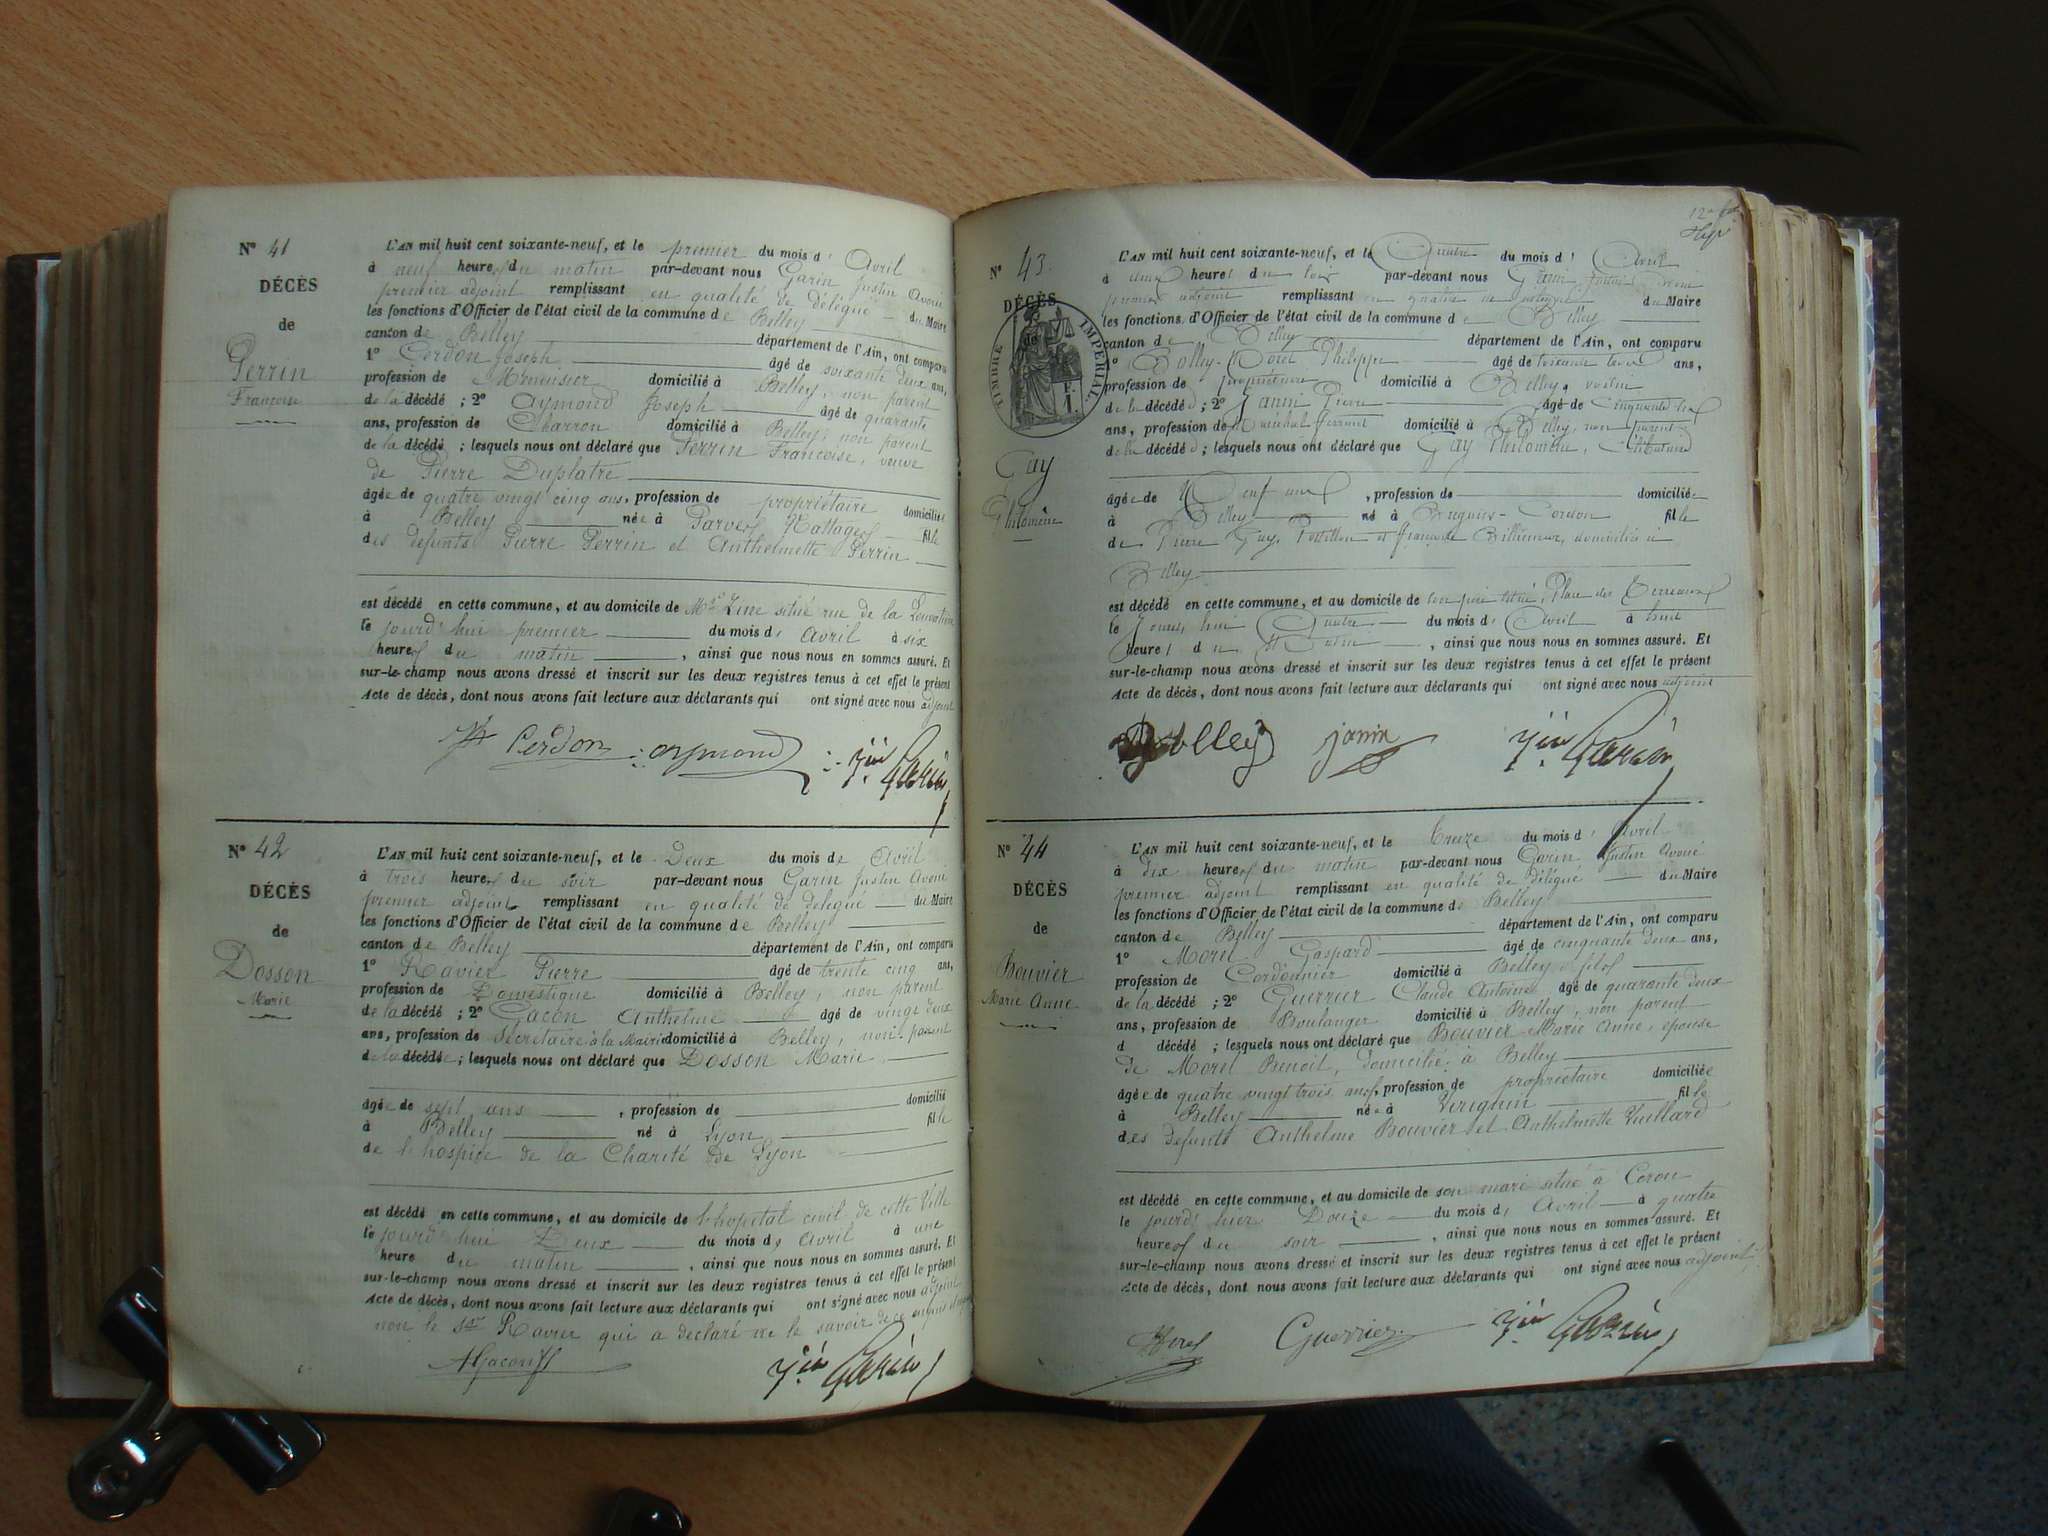 N° 41
DÉCÈS
de
Perrin
Françoise
L'AN mil huit cent soixante-neuf, et le premier du mois d' Avril
à neuf heures du matin par-devant nous Garin Justin Avoué
premier adjoint remplissant en qualité de délégué du Maire
les fonctions d'Officier de l'état civil de la commune de Belley
canton de Belley département de l'Ain, ont comparu
1° Cerdon Joseph âgé de soixante deux ans,
profession de Menuisier domicilié à Belley, non parent
de la décédé ; 2° Aymond Joseph âgé de quarante
ans, profession de Charron domicilié à Belley, non parent
de la décédé ; lesquels nous ont déclaré que Perrin Françoise, veuve
de Pierre Duplatre
âgée de quatre vingt cinq ans, profession de propriétaire domiciliée
à Belley née à Parves Nattages fille
des défunts Pierre Perrin et Anthelmette Perrin
est décédé en cette commune, et au domicile de situé rue de la
le jourd'hui premier du mois d' Avril à six
heures du matin, ainsi que nous nous en sommes assuré. Et
sur-le-champ nous avons dressé et inscrit sur les deux registres tenus à cet effet le présent
Acte de décès, dont nous avons fait lecture aux déclarants qui ont signé avec nous adjoint
Cerdon aymond Jin Garin
N° 42
DÉCÈS
de
Dosson
Marie
L'AN mil huit cent soixante-neuf, et le Deux du mois de Avril
à trois heures du soir par-devant nous Garin Justin Avoué
premier adjoint remplissant en qualité de délégué du Maire
les fonctions d'Officier de l'état civil de la commune de Belley
canton de Belley département de l'Ain, ont comparu
1° Ravier Pierre âgé de trente cinq ans,
profession de Domestique domicilié à Belley, non parent
de la décédé ; 2° Gacon Anthelme âgé de vingt deux
ans, profession de Secrétaire à la Mairie domicilié à Belley, non parent
de la décédé ; lesquels nous ont déclaré que Dosson Marie
âgée de sept ans, profession de domicilié
à Belley né à Lyon fille
de l'hospice de la Charité de Lyon
est décédé en cette commune, et au domicile de l'hopital civil de cette Ville
le jourd'hui Deux du mois d' Avril à une
heure du matin, ainsi que nous nous en sommes assuré. Et
sur-le-champ nous avons dressé et inscrit sur les deux registres tenus à cet effet le présent
Acte de décès, dont nous avons fait lecture aux déclarants qui ont signé avec nous adjoint
non le Sr Ravier qui a déclaré ne le savoir de ce
AGacon Jin Garin
N° 43
DÉCÈS
de
TIMBRE IMPÉRIAL
Gay
Philomène
L'AN mil huit cent soixante-neuf, et le Quatre du mois d' Avril
à heures du soir par-devant nous Garin Justin Avoué
premier adjoint remplissant en qualité de délégué du Maire
les fonctions d'Officier de l'état civil de la commune de Belley
canton de Belley département de l'Ain, ont comparu
1° Bolley-Morel Philippe âgé de soixante ans,
profession de propriétaire domicilié à Belley, voisin
de la décédé ; 2° Janin Pierre âgé de cinquante
ans, profession de Maréchal ferrant domicilié à Belley, non parent
de la décédé ; lesquels nous ont déclaré que Gay Philomène, Célibataire
âgée de Neuf ans, profession de domiciliée
à Belley né à Brégnier-Cordon fille
de Pierre Gay, Postillon et Françoise Billiemaz, domiciliés à
Belley
est décédé en cette commune, et au domicile de son père situé, Place des Terreaux
le jourd'hui Quatre du mois d' Avril à huit
heures du Matin, ainsi que nous nous en sommes assuré. Et
sur-le-champ nous avons dressé et inscrit sur les deux registres tenus à cet effet le présent
Acte de décès, dont nous avons fait lecture aux déclarants qui ont signé avec nous adjoint
Bolley janin Jin Garin
N° 44
DÉCÈS
de
Bouvier
Marie Anne
L'AN mil huit cent soixante-neuf, et le treize du mois d' Avril
à dix heures du matin par-devant nous Garin Justin Avoué
premier adjoint remplissant en qualité de délégué du Maire
les fonctions d'Officier de l'état civil de la commune de Belley
canton de Belley département de l'Ain, ont comparu
1° Morel Gaspard âgé de cinquante deux ans,
profession de Cordonnier domicilié à Belley fils
de la décédé ; 2° Guerrier Claude Antoine âgé de quarante deux
ans, profession de Boulanger domicilié à Belley, non parent
d décédé ; lesquels nous ont déclaré que Bouvier Marie Anne, épouse
de Morel Benoit, domicilié à Belley
âgée de quatre vingt trois ans, profession de propriétaire domiciliée
à Belley née à Virignin fille
des défunts Anthelme Bouvier et Anthelmette Vuillard
est décédé en cette commune, et au domicile de son mari situé à Coron
le jourd'hier Douze du mois d' Avril à quatre
heures du soir, ainsi que nous nous en sommes assuré. Et
sur-le-champ nous avons dressé et inscrit sur les deux registres tenus à cet effet le présent
Acte de décès, dont nous avons fait lecture aux déclarants qui ont signé avec nous adjoint
Morel Guerrier Jin Garin